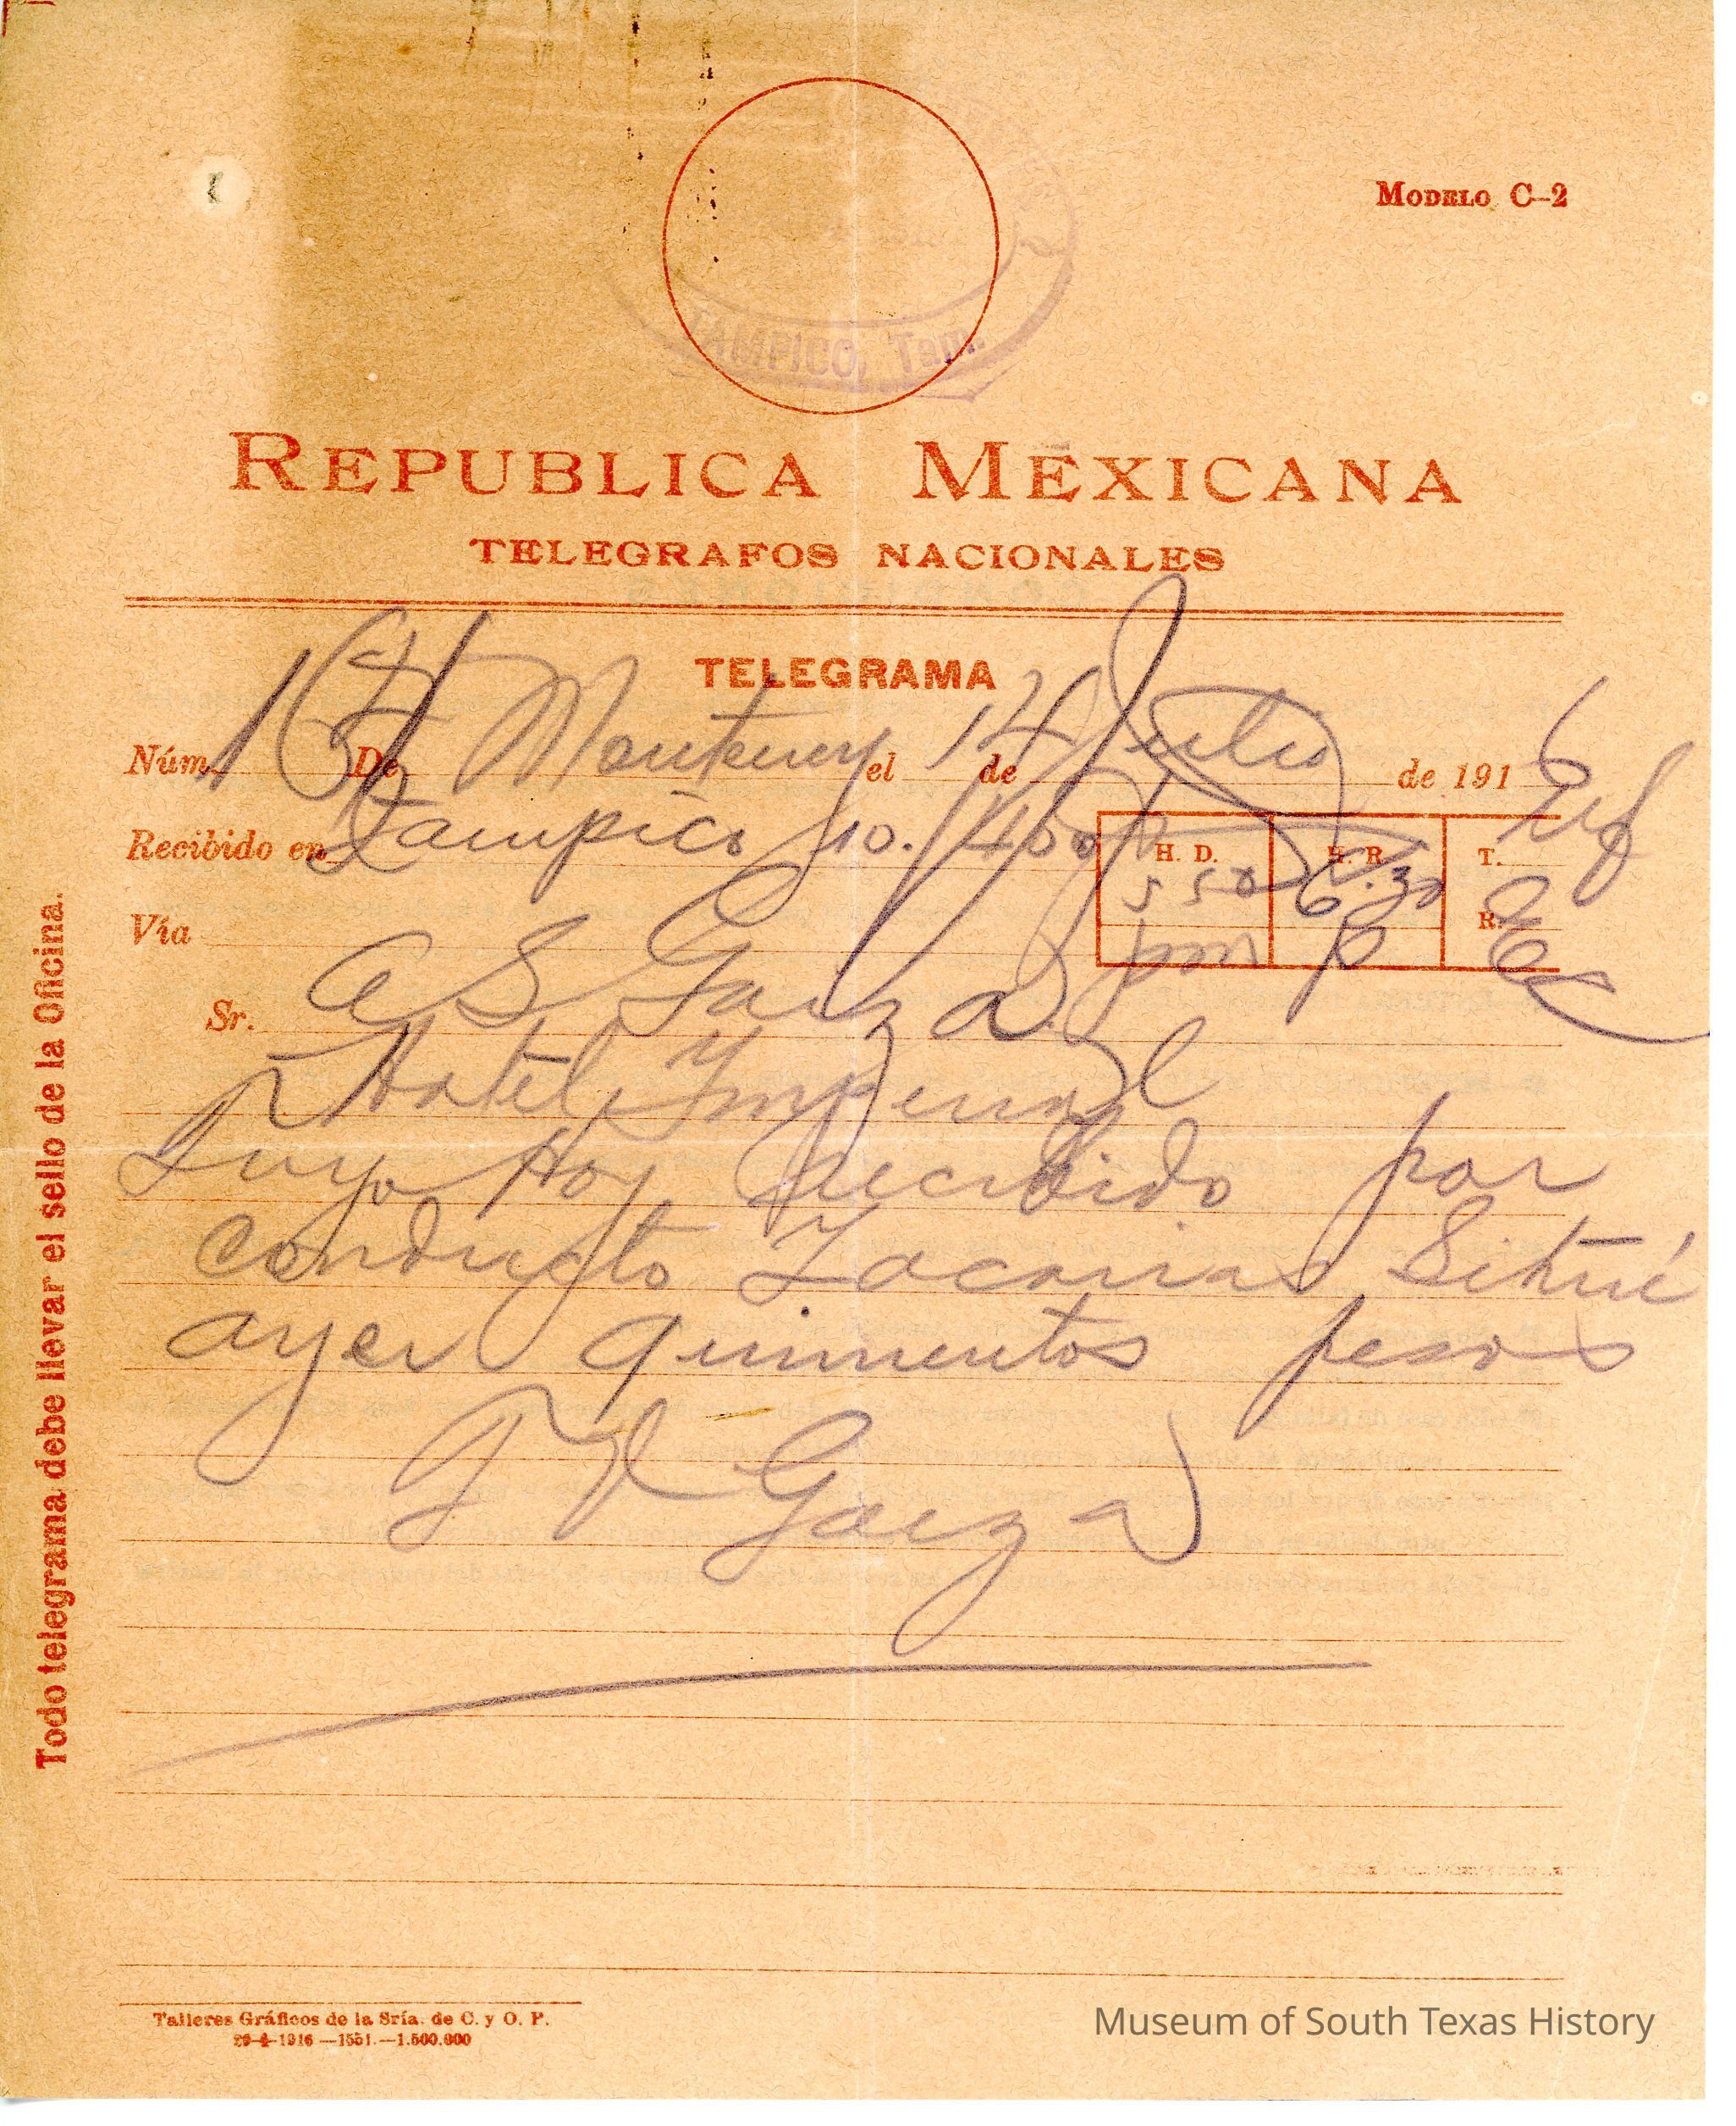 MODELO C-2
TAMPICO, Tam.
REPUBLICA MEXICANA
TELEGRAFOS NACIONALES
TELEGRAMA
Núm. De Monterrey el 14 de Julio de 1916
Recibido en Tampico 10.
H. D. H. R. T.
550 6.30
Vía pm p R.
Sr. A S Garza
Hotel Imperial
Suyo Hoy Recibido por
conducto Zacarias
ayer quinientos pesos
Garza
Todo telegrama debe llevar el sello de la Oficina.
Talleres Gráficos de la Sría. de C. y O. P.
29-4-1916—1551.—1.500.000
Museum of South Texas History